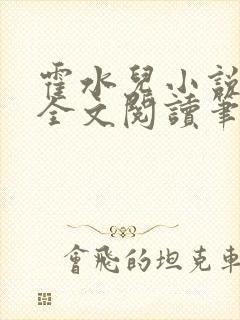 霍水兒小說
全文閱讀筆
會飛的坦克車